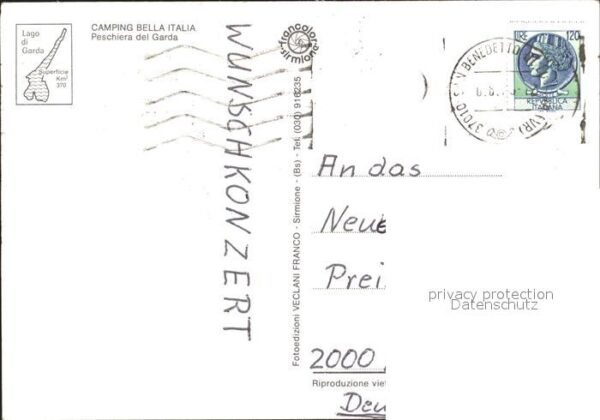 Lago
di
Garda
Superficie
Km²
370
CAMPING BELLA ITALIA
Peschiera del Garda
WUNSCHKONZERT
Fotoedizioni VECLANI FRANCO - Sirmione - (Bs) - Tel. (030) 916235
francolor
Sirmione
LIRE 120
REPUBBLICA
ITALIANA
37010 SAN BENEDETTO (VR)
An das
Neue
Prei
2000
Riproduzione
Deu
privacy protection
Datenschutz